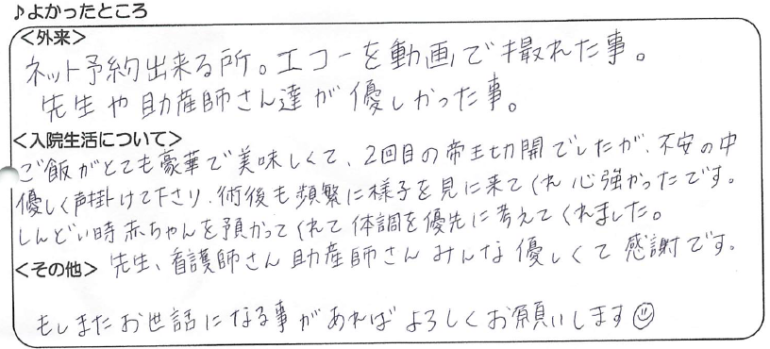 ♪よかったところ
<外来>
ネット予約出来る所。エコーを動画で撮れた事。
先生や助産師さん達が優しかった事。
<入院生活について>
ご飯がとても豪華で美味しくて、2回目の帝王切開でしたが、不安の中
優しく声掛けて下さり、術後も頻繁に様子を見に来てくれ心強かったです。
しんどい時赤ちゃんを預かってくれて体調を優先に考えてくれました。
<その他> 先生、看護師さん助産師さんみんな優しくて感謝です。
もしまたお世話になる事があればよろしくお願いします☺